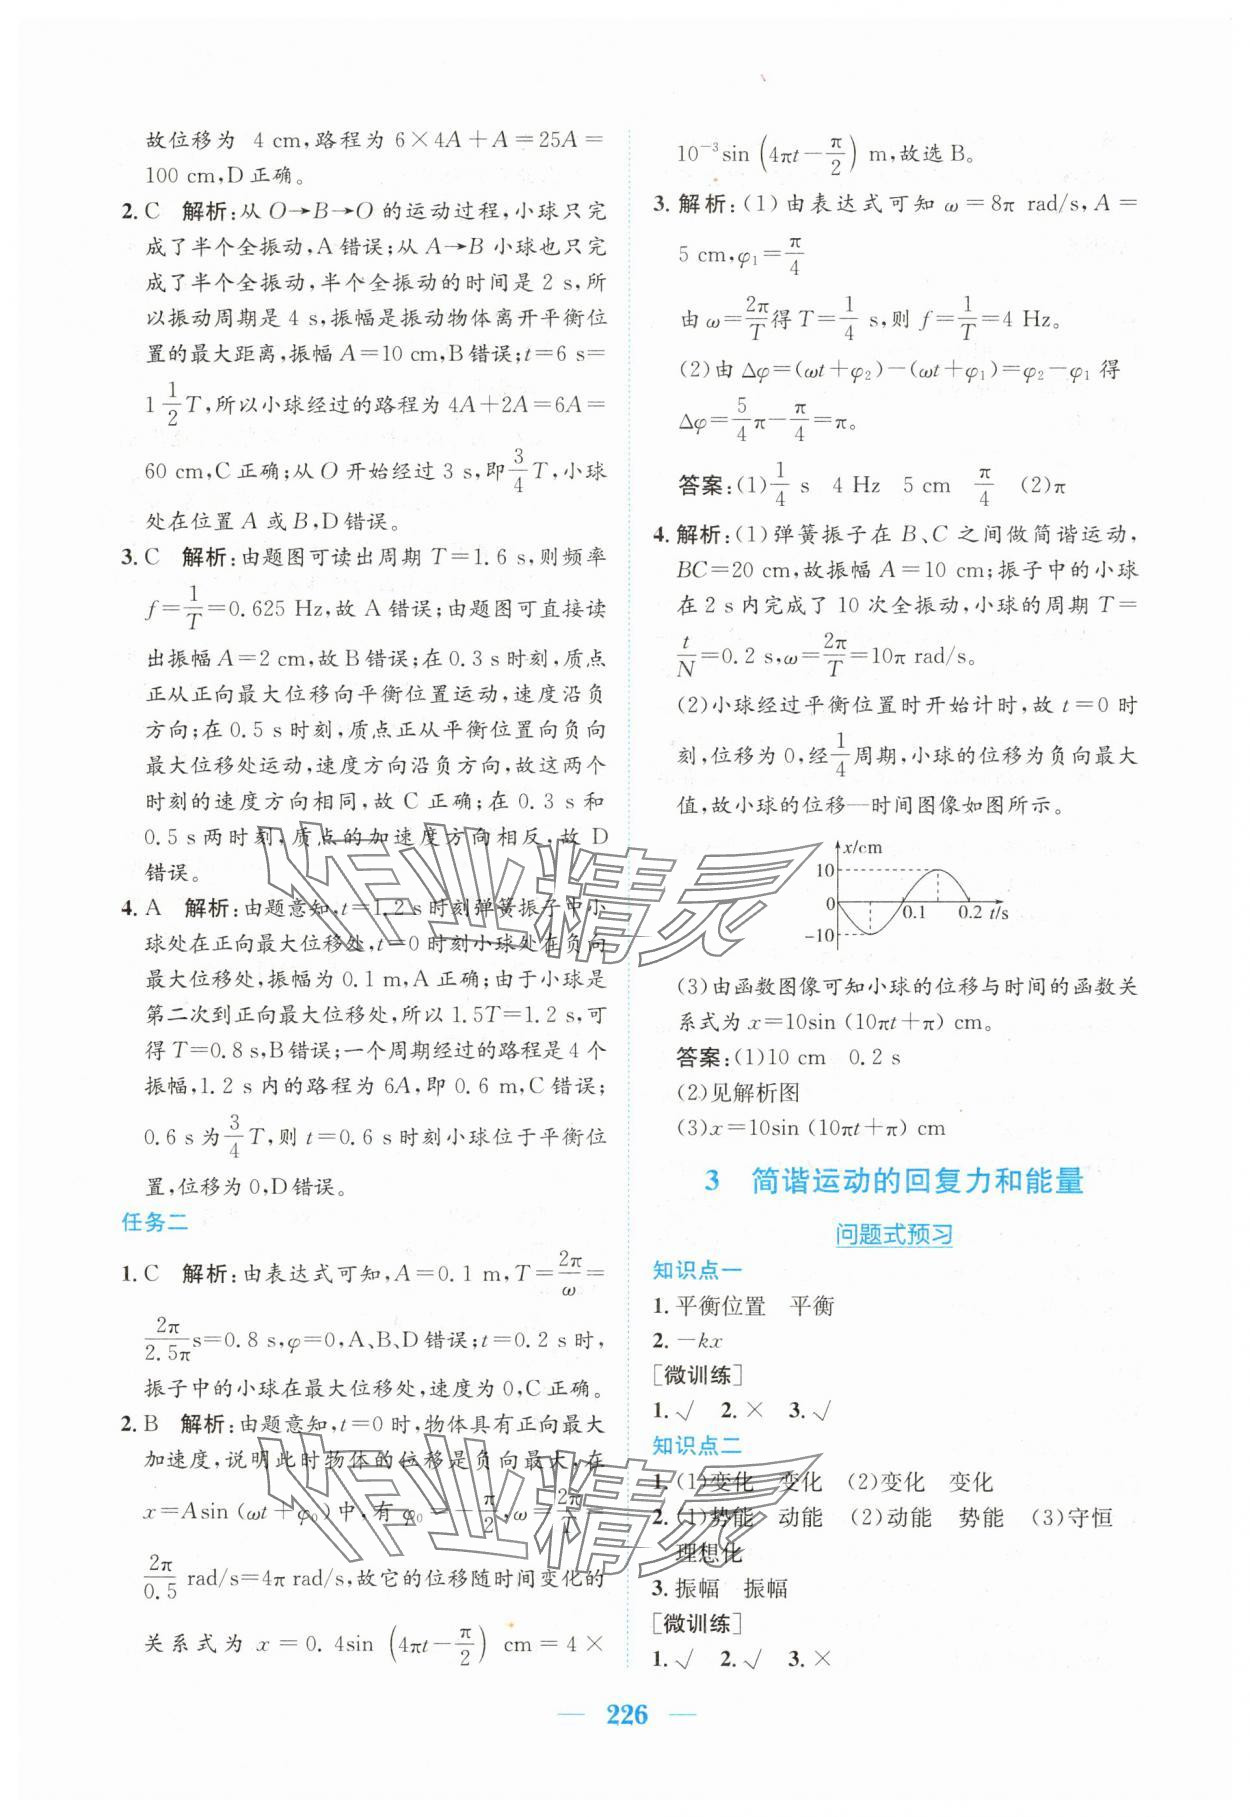 故位移为 4 cm,路程为 6×4A+A=25A=
100 cm,D 正确。
2. C 解析:从 O→B→O 的运动过程,小球只完
成了半个全振动,A 错误;从 A→B 小球也只完
成了半个全振动,半个全振动的时间是 2 s,所
以振动周期是 4 s,振幅是振动物体离开平衡位
置的最大距离,振幅 A=10 cm,B 错误;t=6 s=
1 1/2 T,所以小球经过的路程为 4A+2A=6A=
60 cm,C 正确;从 O 开始经过 3 s,即 3/4 T,小球
处在位置 A 或 B,D 错误。
3. C 解析:由题图可读出周期 T=1.6 s,则频率
f=1/T=0.625 Hz,故 A 错误;由题图可直接读
出振幅 A=2 cm,故 B 错误;在 0.3 s 时刻,质点
正从正向最大位移向平衡位置运动,速度沿负
方向;在 0.5 s 时刻,质点正从平衡位置向负向
最大位移处运动,速度方向沿负方向,故这两个
时刻的速度方向相同,故 C 正确;在 0.3 s 和
0.5 s 两时刻,质点的加速度方向相反,故 D
错误。
4. A 解析:由题意知,t=1.2 s 时刻弹簧振子中小
球处在正向最大位移处,t=0 时刻小球处在负向
最大位移处,振幅为 0.1 m,A 正确;由于小球是
第二次到正向最大位移处,所以 1.5T=1.2 s,可
得 T=0.8 s,B 错误;一个周期经过的路程是 4 个
振幅,1.2 s 内的路程为 6A,即 0.6 m,C 错误;
0.6 s 为 3/4 T,则 t=0.6 s 时刻小球位于平衡位
置,位移为 0,D 错误。
任务二
1. C 解析:由表达式可知,A=0.1 m,T=2π/ω=
2π/2.5π s=0.8 s,φ=0,A、B、D 错误;t=0.2 s 时,
振子中的小球在最大位移处,速度为 0,C 正确。
2. B 解析:由题意知,t=0 时,物体具有正向最大
加速度,说明此时物体的位移是负向最大,在
x=Asin (ωt+φ₀)中,有 φ₀=-π/2,ω=2π/T=
2π/0.5 rad/s=4π rad/s,故它的位移随时间变化的
关系式为 x=0.4sin (4πt-π/2) cm=4×
10⁻³sin (4πt-π/2) m,故选 B。
3. 解析:(1)由表达式可知 ω=8π rad/s,A=
5 cm,φ₁=π/4
由 ω=2π/T 得 T=1/4 s,则 f=1/T=4 Hz。
(2)由 Δφ=(ωt+φ₂)-(ωt+φ₁)=φ₂-φ₁ 得
Δφ=5/4 π-π/4=π。
答案:(1)1/4 s 4 Hz 5 cm π/4 (2)π
4. 解析:(1)弹簧振子在 B、C 之间做简谐运动,
BC=20 cm,故振幅 A=10 cm;振子中的小球
在 2 s 内完成了 10 次全振动,小球的周期 T=
t/N=0.2 s,ω=2π/T=10π rad/s。
(2)小球经过平衡位置时开始计时,故 t=0 时
刻,位移为 0,经 1/4 周期,小球的位移为负向最大
值,故小球的位移—时间图像如图所示。
x/cm
10
0 0.1 0.2 t/s
-10
(3)由函数图像可知小球的位移与时间的函数关
系式为 x=10sin (10πt+π) cm。
答案:(1)10 cm 0.2 s
(2)见解析图
(3)x=10sin (10πt+π) cm
3 简谐运动的回复力和能量
问题式预习
知识点一
1. 平衡位置 平衡
2. -kx
[微训练]
1. √ 2. × 3. √
知识点二
1. (1)变化 变化 (2)变化 变化
2. (1)势能 动能 (2)动能 势能 (3)守恒
理想化
3. 振幅 振幅
[微训练]
1. √ 2. √ 3. ×
— 226 —
作业精灵
作业精灵